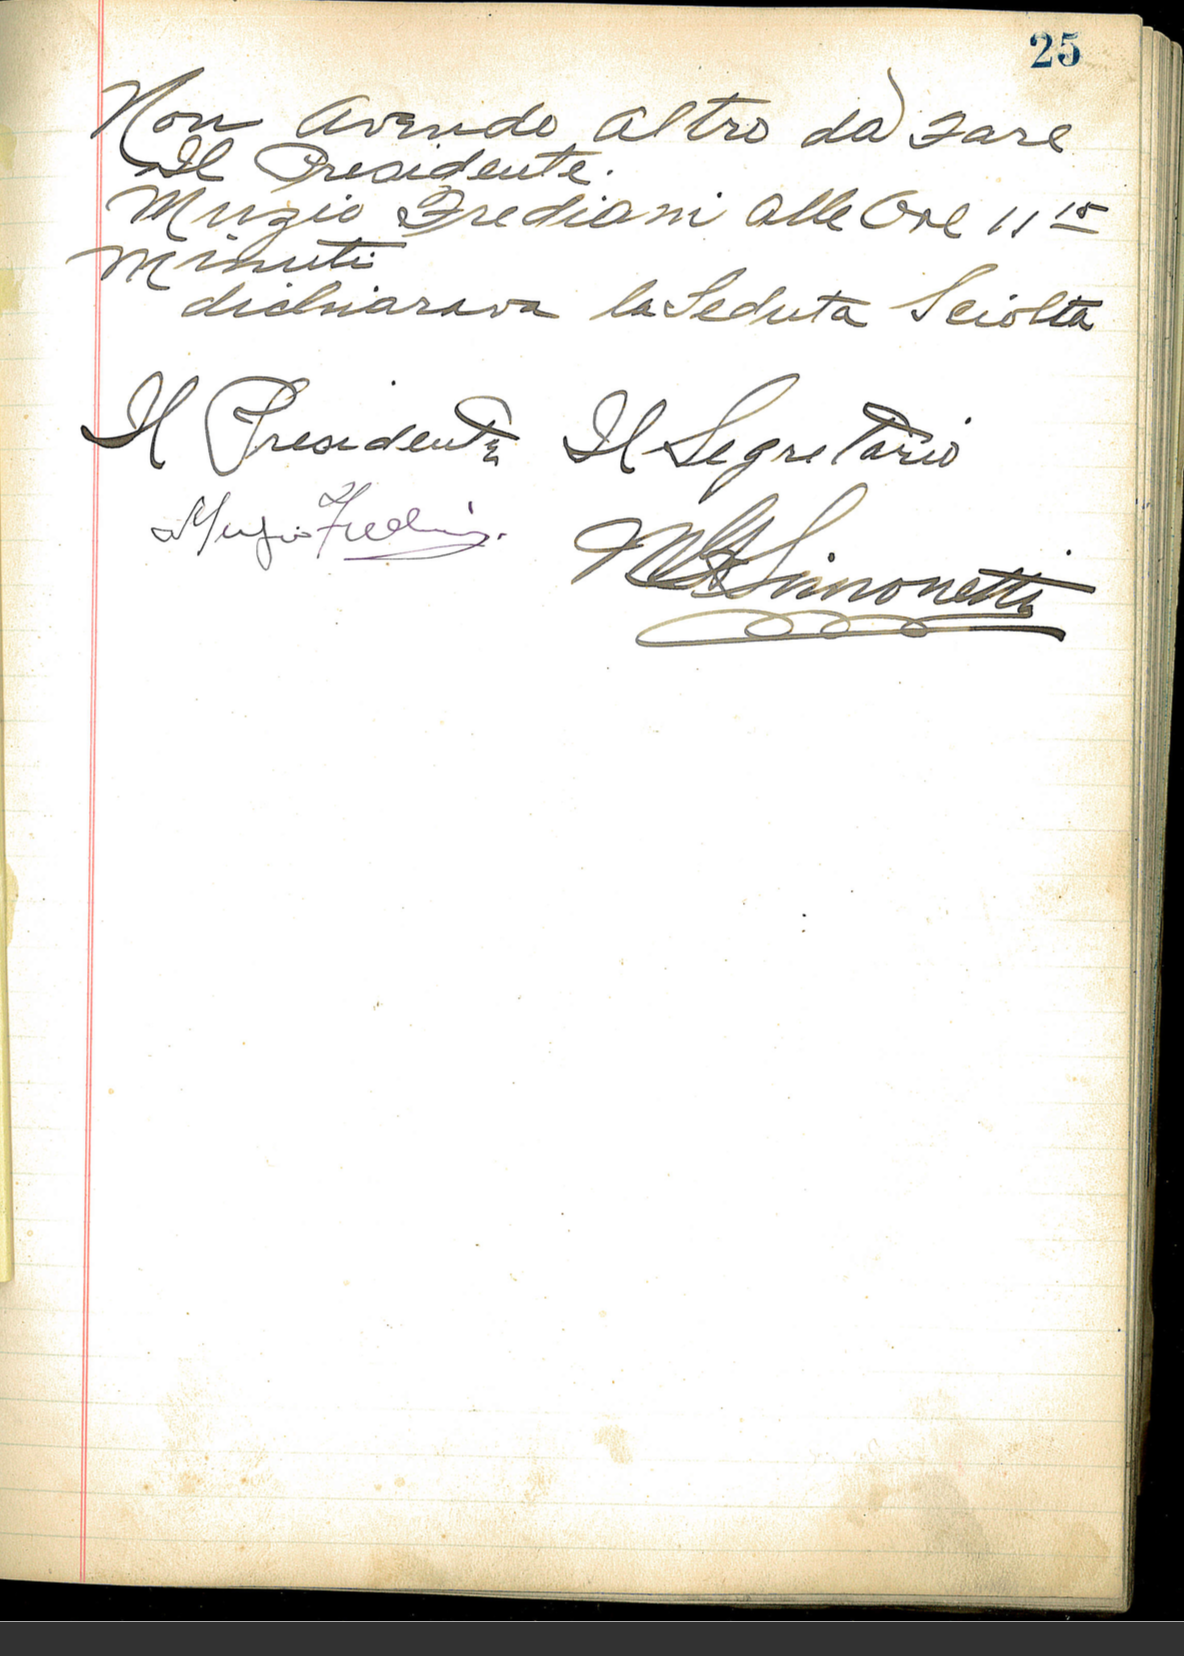 25
Non avendo altro da fare
Il Presidente.
Muzio Frediani alle Ore 11 15
Minuti
dichiarava la Seduta Sciolta
Il Presidente Il Segretario
Muzio Frediani.
Simonetti